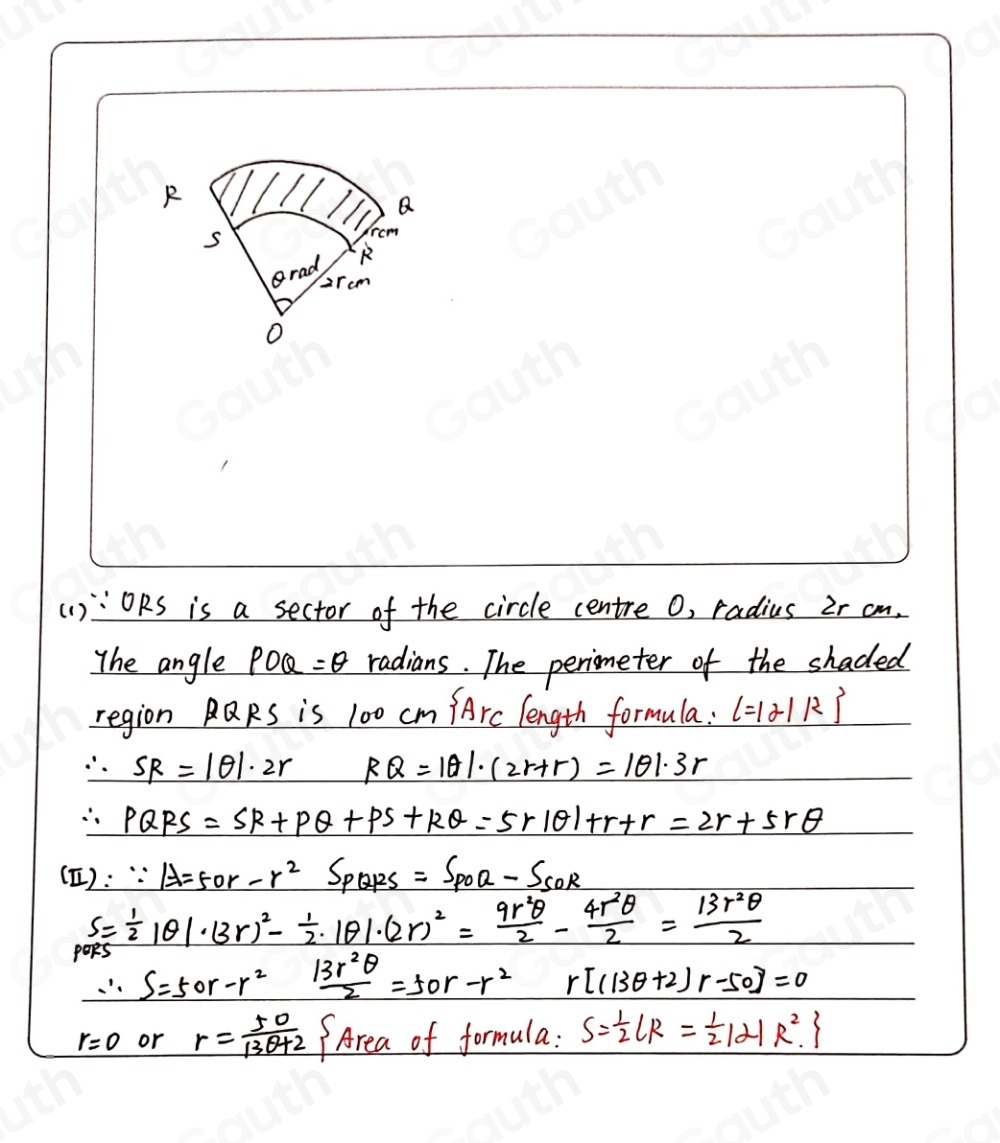 R
Q
S
rcm
R
θ rad
2rcm
O
(1) ∵ ORS is a sector of the circle centre O, radius 2r cm.
The angle POQ = θ radians. The perimeter of the shaded
region PQRS is 100 cm {Arc length formula: l=|α|R}
∴ SR = |θ|·2r RQ = |θ|·(2r+r) = |θ|·3r
∴ PQRS = SR + PQ + PS + RQ = 5r|θ|+r+r = 2r+5rθ
(II): ∵ A=50r-r² S_PQRS = S_POQ - S_SOR
S_PQRS = 1/2 |θ|·(3r)² - 1/2·|θ|·(2r)² = 9r²θ/2 - 4r²θ/2 = 13r²θ/2
∴ S=50r-r² 13r²θ/2 = 50r-r² r[(13θ+2)r-50]=0
r=0 or r = 50/13θ+2 {Area of formula: S=1/2 lR = 1/2|α|R².}